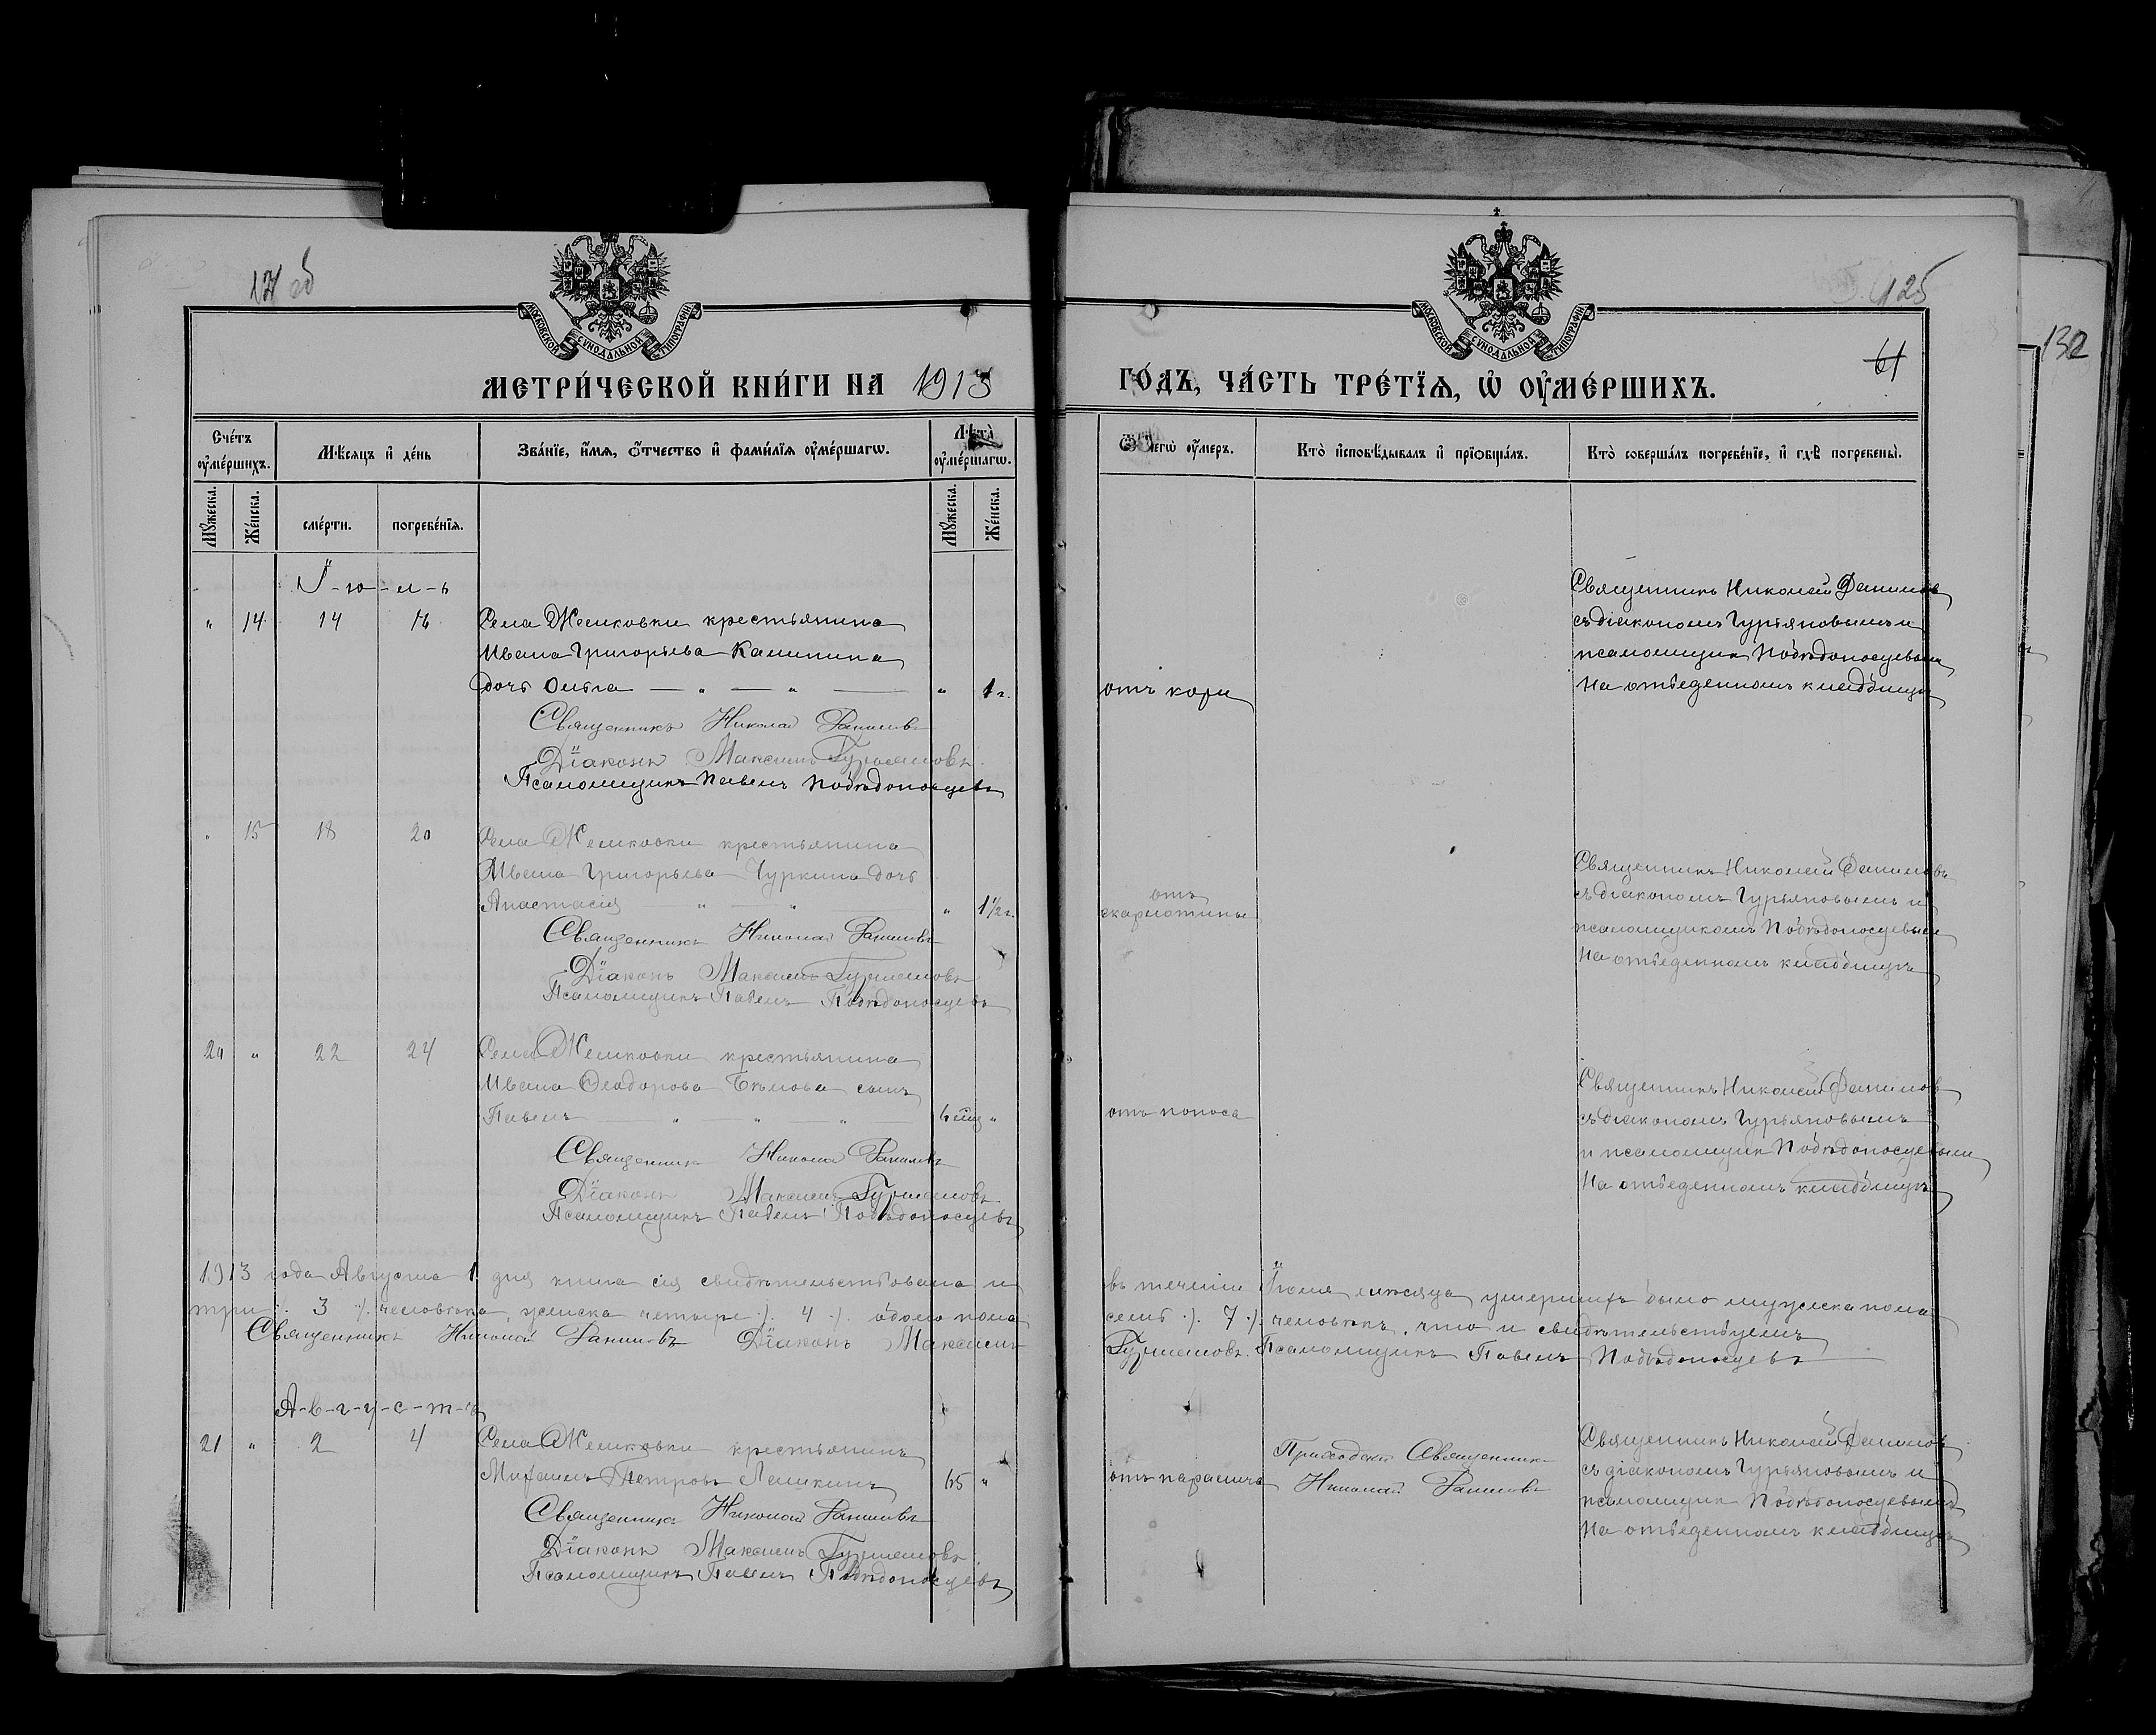 124 об
125
61
132
МОСКОВСКОЙ СУНОДАЛЬНОЙ ТИПОГРАФІИ
МОСКОВСКОЙ СУНОДАЛЬНОЙ ТИПОГРАФІИ
МЕТРИ́ЧЕСКОЙ КНИ́ГИ НА 1913 ГО́ДЪ, ЧА́СТЬ ТРЕ́ТЇѦ, Ѡ ОУ҆МЕ́РШИХЪ.
Сче́тъ оу҆ме́ршихъ.
Мѣ́сяцъ и҆ де́нь
Зва́нїе, и҆́мѧ, ѻ҆́тчество и҆ фами́лїѧ оу҆ме́ршагѡ.
Лѣ́та оу҆ме́ршагѡ.
Ѿ чегѡ̀ оу҆́меръ.
Кто̀ и҆сповѣ́дывалъ и҆ прїѡбща́лъ.
Кто̀ соверша́лъ погребе́нїе, и҆ гдѣ̀ погребены̀.
Мꙋ́жеска. Же́нска.
сме́рти. погребе́нїѧ.
Мꙋ́жеска. Же́нска.
І-ю-л-ь
" 14 14 16 Села Жемковки крестьянина
Ивана Григорьева Калинина
дочь Ольга — " — " — " 1 г.
Священникъ Николай Даниловъ
Діаконъ Максимъ Гурьяновъ.
Псаломщикъ Павелъ Побѣдоносцевъ
отъ кори
Священникъ Николай Данилов
съ діакономъ Гурьяновымъ и
псаломщик. Побѣдоносцевымъ
На отведенномъ кладбищѣ
" 15 18 20 Села Жемковки крестьянина
Ивана Григорьева Чуркина дочь
Анастасія — " — " — " 1½ г.
Священникъ Николай Даниловъ
Діаконъ Максимъ Гурьяновъ
Псаломщикъ Павелъ Побѣдоносцевъ
отъ
скарлотины
Священникъ Николай Даниловъ
съ діакономъ Гурьяновымъ и
псаломщикомъ Побѣдоносцевым
На отведенномъ кладбищѣ
20 " 22 24 Села Жемковки крестьянина
Ивана Ѳеодорова Бѣлова сынъ
Павелъ — " — " — " — 6 мц "
Священник Николай Даниловъ
Діаконъ Максимъ Гурьяновъ
Псаломщикъ Павелъ Побѣдоносцевъ
отъ поноса
Священникъ Николай Данилов
съ діакономъ Гурьяновымъ
и псаломщик Побѣдоносцевымъ
На отведенномъ кладбищѣ
1913 года Августа 1 дня книга сія свидѣтельствована и въ теченіи Іюля мѣсяца умершихъ было мужска пола
три ·/. 3 ·/. человѣка, женска четыре ·/. 4 ·/. обоего пола семь ·/. 7 ·/. человѣкъ, что и свидѣтельствуемъ
Священникъ Николай Даниловъ Діаконъ Максимъ Гурьяновъ. Псаломщикъ Павелъ Побѣдоносцевъ
А-в-г-у-с-т-ъ
21 " 2 4 Села Жемковки крестьянинъ
Михаилъ Петровъ Лямкинъ 65 "
Священникъ Николай Даниловъ
Діаконъ Максимъ Гурьяновъ.
Псаломщикъ Павелъ Побѣдоносцевъ
отъ паралича
Приходскій Священник
Николай Даниловъ
Священникъ Николай Данилов
съ діакономъ Гурьяновымъ и
псаломщик Побѣдоносцевымъ
На отведенномъ кладбищѣ